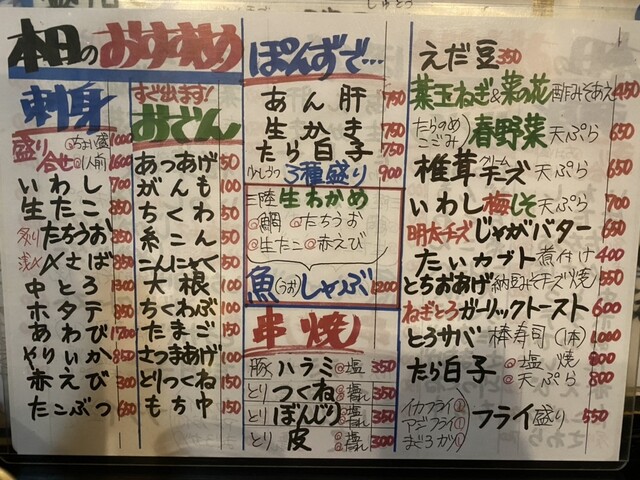 本日のおすすめ
刺身
盛り合せ
@ちょい盛 1000
@1人前 1600
いわし 700
生たこ 850
炙りたちうお 850
浅〆〆さば 850
中とろ 1300
ホタテ 850
あわび 1200
やりいか 850
赤えび 300
たこぶつ 650
すぐ出ます!
おでん
あつあげ 150
がんも 100
ちくわ 150
糸こん 150
こんにゃく 150
大根 100
ちくわぶ 100
たまご 150
さつまあげ 100
どりつくね 150
もち巾 150
ぽんずで…
あん肝 750
生かき 750
たら白子 750
少しずつ3種盛り 900
三陸生わかめ
@鯛 @たちうお
@生たこ @赤えび
魚(うお)しゃぶ 1200
串焼
豚ハラミ@塩 350
とりつくね 350
とりぼんじり 350
とり皮 300
えだ豆 350
葉玉ねぎ&菜の花酢みそあえ 450
たらのめ
こごみ
春野菜天ぷら 650
椎茸クリームチーズ天ぷら 650
いわし梅しそ天ぷら 700
明太チーズじゃがバター 650
たいカブト煮付け 400
とちおあげ(納豆みそチーズ焼) 550
ねぎとろガーリックトースト 600
とろサバ棒寿司(1本) 1000
たら白子
@塩焼 800
@天ぷら 800
イカフライ
アジフライ
まぐろカツ
フライ盛り 550